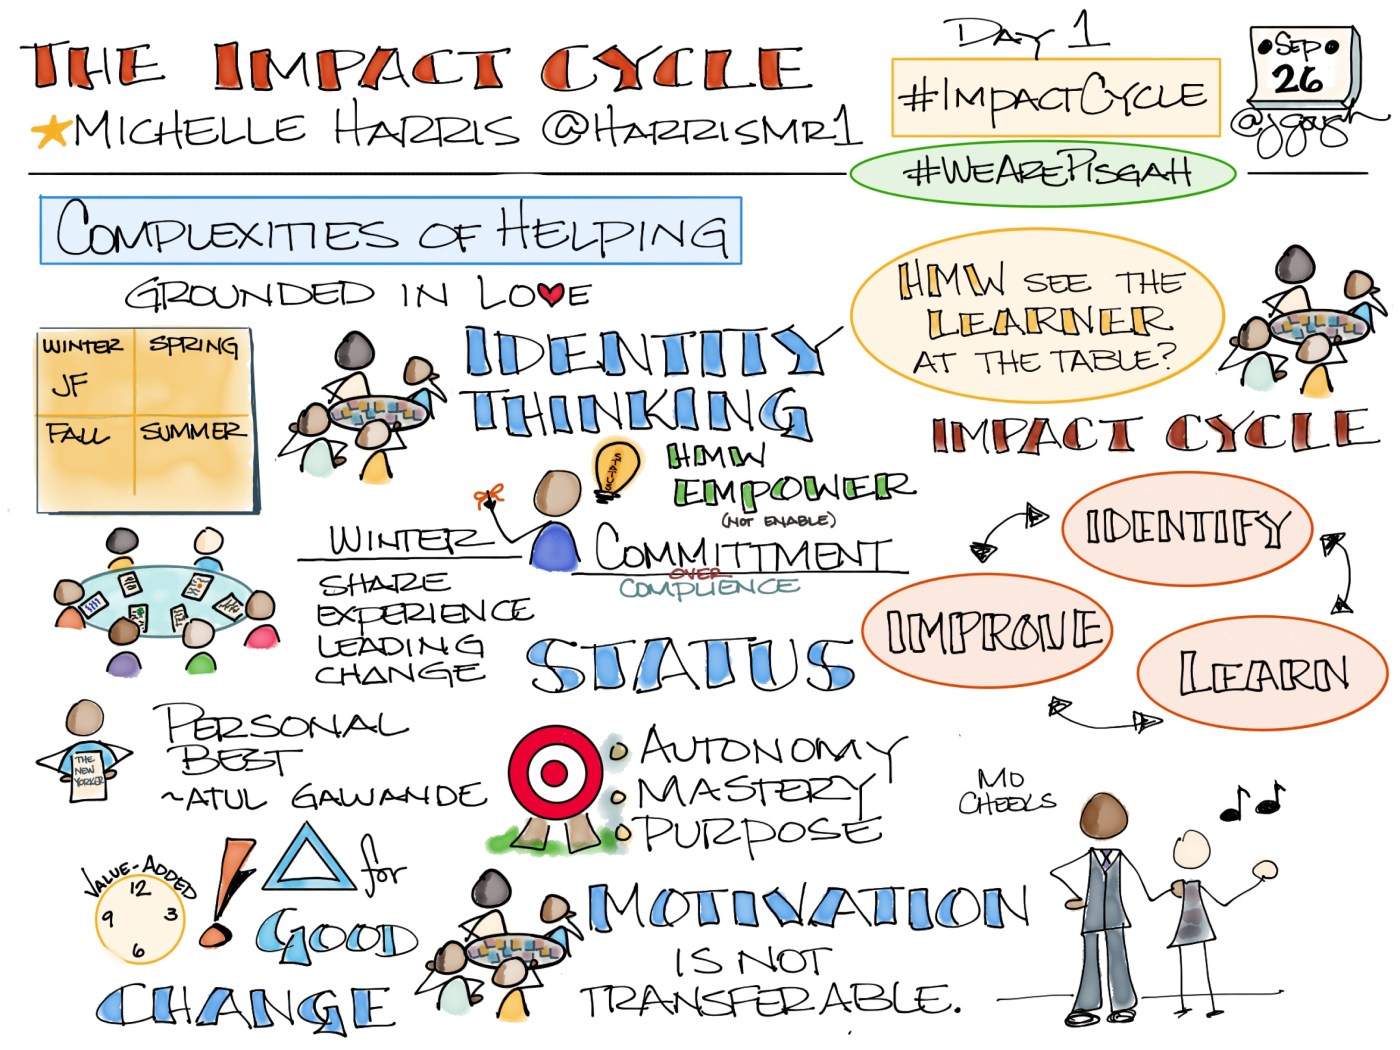 THE IMPACT CYCLE
MICHELLE HARRIS @HARRISMR1
DAY 1
#IMPACTCYCLE
#WEAREPISGAH
SEP
26
@jgough
COMPLEXITIES OF HELPING
GROUNDED IN LO♥E
WINTER
SPRING
JF
FALL
SUMMER
IDENTITY
THINKING
HMW
EMPOWER
(NOT ENABLE)
WINTER
SHARE
EXPERIENCE
LEADING
CHANGE
COMMITTMENT
OVER
COMPLIENCE
STATUS
STATUS
PERSONAL
BEST
~ATUL GAWANDE
THE
NEW
YORKER
AUTONOMY
MASTERY
PURPOSE
VALUE-ADDED
12
9 3
6
! △ for
GOOD
CHANGE
MOTIVATION
IS NOT
TRANSFERABLE.
HMW SEE THE
LEARNER
AT THE TABLE?
IMPACT CYCLE
IDENTIFY
IMPROVE
LEARN
MO
CHEEKS